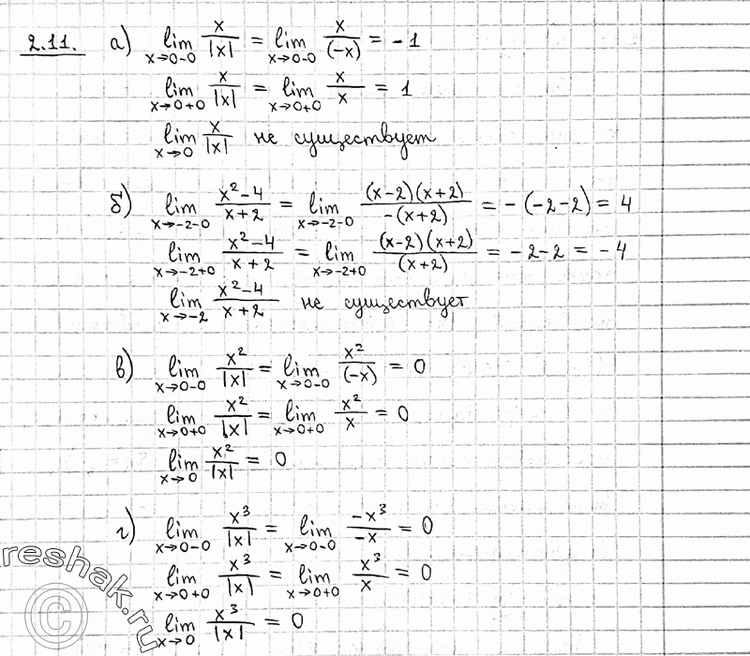 2.11. а) lim x→0-0 x/|x| = lim x→0-0 x/(-x) = -1
lim x→0+0 x/|x| = lim x→0+0 x/x = 1
lim x→0 x/|x| не существует
б) lim x→-2-0 (x²-4)/(x+2) = lim x→-2-0 (x-2)(x+2)/-(x+2) = -(-2-2) = 4
lim x→-2+0 (x²-4)/(x+2) = lim x→-2+0 (x-2)(x+2)/(x+2) = -2-2 = -4
lim x→-2 (x²-4)/(x+2) не существует
в) lim x→0-0 x²/|x| = lim x→0-0 x²/(-x) = 0
lim x→0+0 x²/|x| = lim x→0+0 x²/x = 0
lim x→0 x²/|x| = 0
г) lim x→0-0 x³/|x| = lim x→0-0 -x³/-x = 0
lim x→0+0 x³/|x| = lim x→0+0 x³/x = 0
lim x→0 x³/|x| = 0
reshak.ru
©